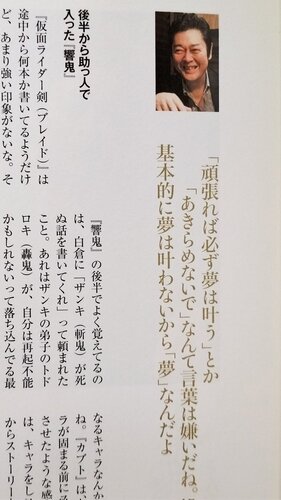 「頑張れば必ず夢は叶う」とか
「あきらめないで」なんて言葉は嫌いだね。
基本的に夢は叶わないから「夢」なんだよ
後半から助っ人で
入った『響鬼』
『仮面ライダー剣（ブレイド）』は
途中から何本か書いてるようだけ
ど、あまり強い印象がないな。そ
『響鬼』の後半でよく覚えてるの
は、白倉に「ザンキ（斬鬼）が死
ぬ話を書いてくれ」って頼まれた
こと。あれはザンキの弟子のトド
ロキ（轟鬼）が、自分は再起不能
かもしれないって落ち込んでる最
なるキャラなんか
ね。『カブト』は、
ラが固まる前に
させたような感
は、キャラをし
からストーリー